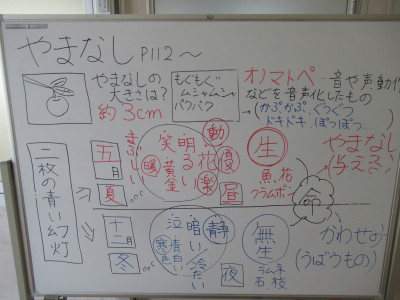 やまなし P112～
やまなしの
大きさは？
約3cm
もぐもぐ
ムシャムシャ
パクパク
オノマトペ…音や声、動作
などを音声化したもの
→(かぷかぷ、ぐつぐつ
ドキドキ、ぽっぽっ…)
二枚の青い幻灯
五月
夏
暖
笑
明るい
黄金
花
動
優
楽
昼
生
魚花
クラムボン
やまなし
(与える)
命
十二月
冬
寒
泣
暗い
青白い
冷たい
静
夜
無生
ラムネ
石 枝
かわせみ
(うばうもの)